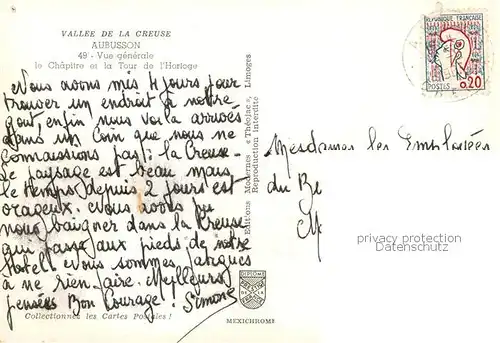 VALLEE DE LA CREUSE
AUBUSSON
49 - Vue générale
le Châpitre et la Tour de l'Horloge
Nous avons mis 4 jours pour
trouver un endroit à notre
gout, enfin nous voilà arrivés
dans un coin que nous ne
connaissions pas : la Creuse.
Le paysage est beau mais
le temps depuis 2 jours est
orageux. Nous avons pu
nous baigner dans la Creuse
qui passe aux pieds de notre
hotel. Nous sommes fatigués
à ne rien faire. Meilleures
pensées Bon Courage. Simone
Collectionnez les Cartes Postales !
Editions Modernes « Théojac », Limoges
Reproduction interdite
MEXICHROME
REPUBLIQUE FRANÇAISE
POSTES 0,20
Mesdames les Employées
du Be
privacy protection
Datenschutz